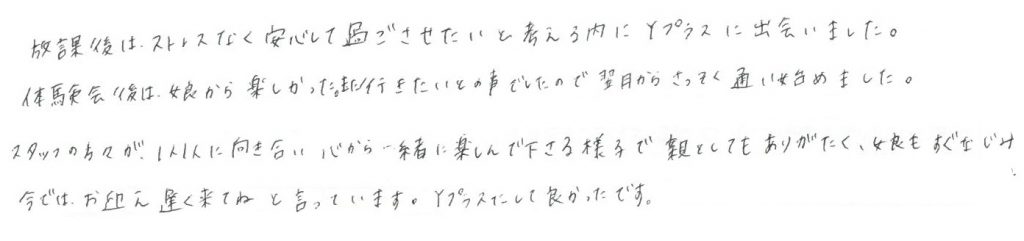 放課後は、ストレスなく安心して過ごさせたいと考える内にYプラスに出会いました。
体験会後は、娘から楽しかった。また行きたいとの声でしたので翌月からさっそく通い始めました。
スタッフの方々が、1人1人に向き合い心から一緒に楽しんで下さる様子で親としてもありがたく、娘もすぐなじみ
今では、お迎え遅く来てねと言っています。Yプラスにして良かったです。